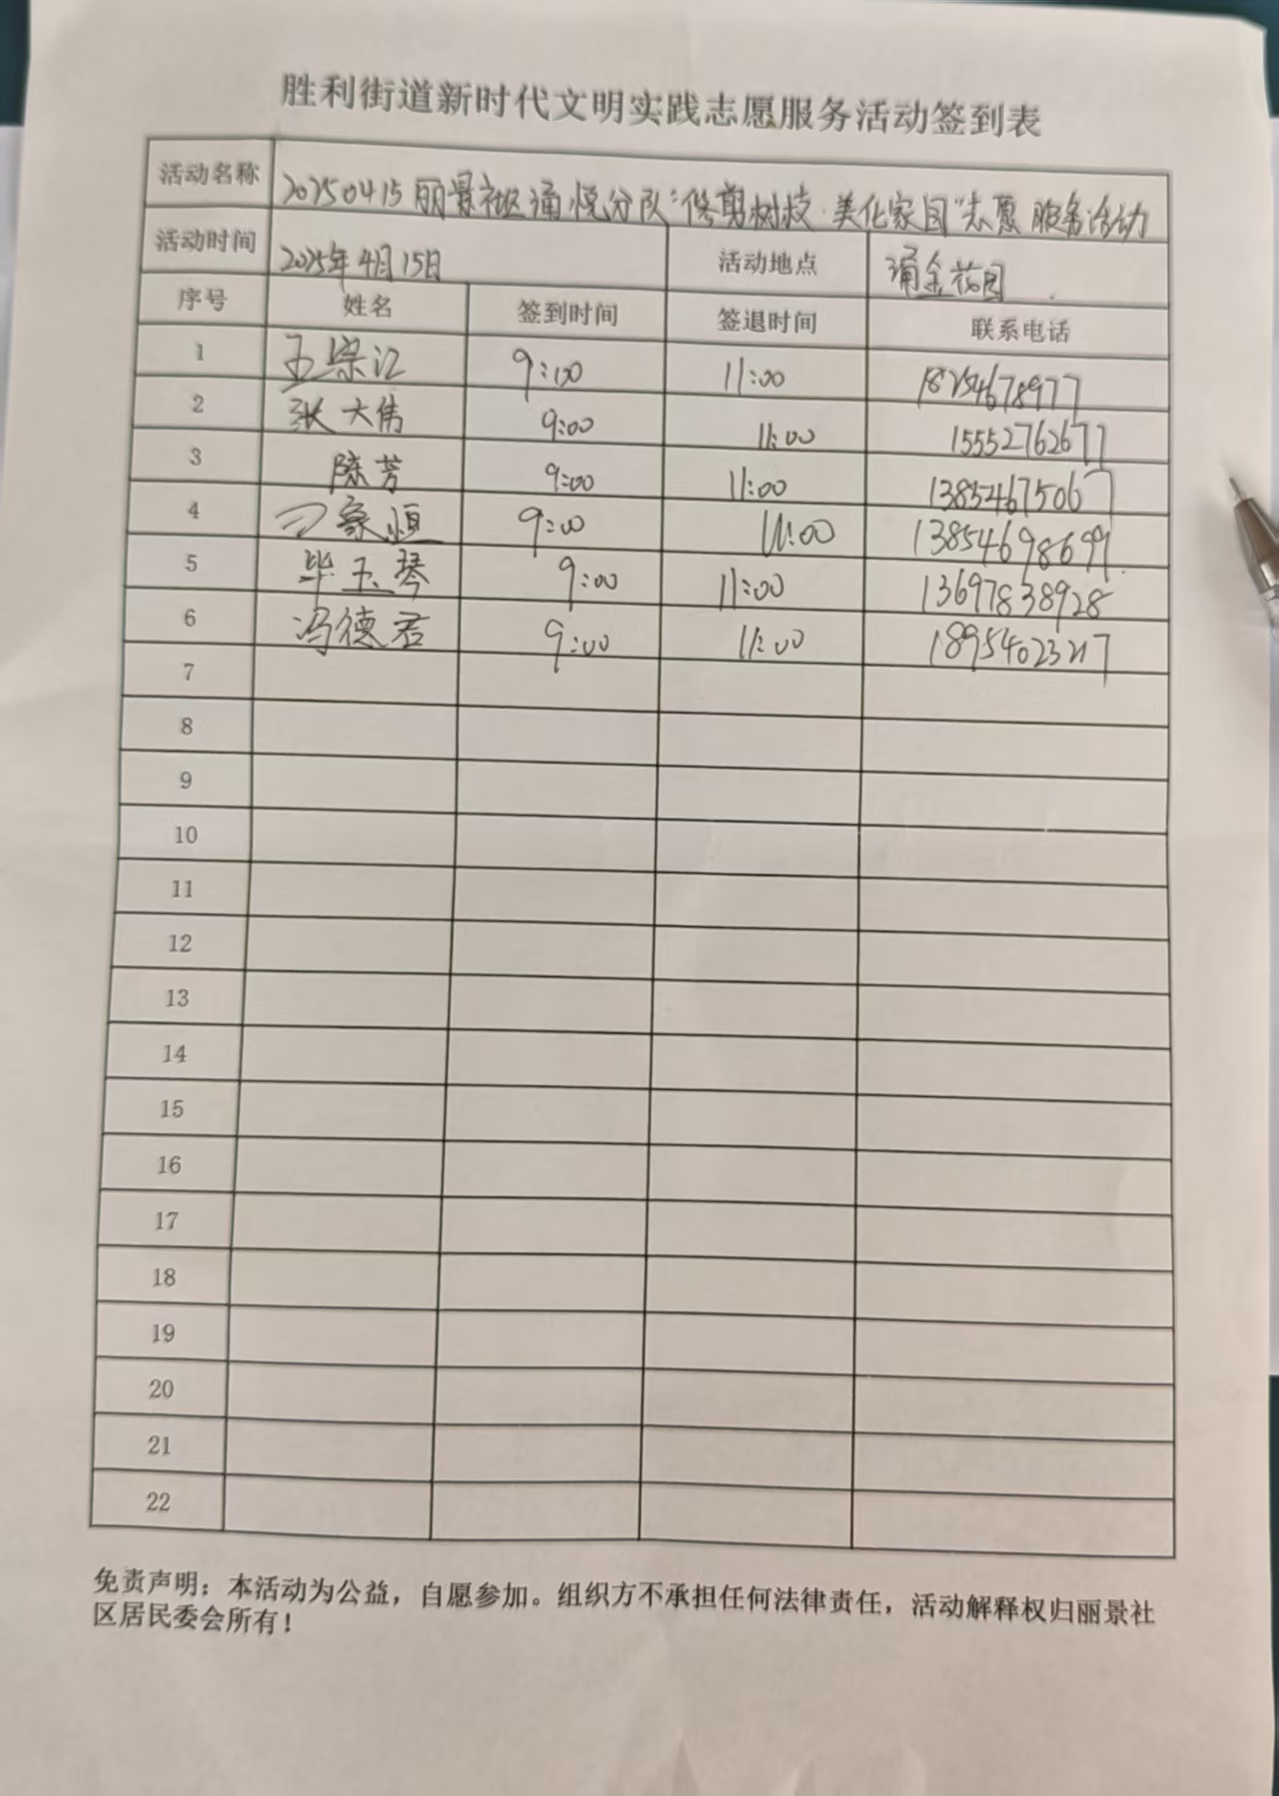 胜利街道新时代文明实践志愿服务活动签到表
活动名称 20250415丽景社区涌悦分队“修剪树枝·美化家园”志愿服务活动
活动时间 2025年4月15日 活动地点 涌金花园
序号 姓名 签到时间 签退时间 联系电话
1 王梁江 9:00 11:00 18254678977
2 张大伟 9:00 11:00 15552762677
3 陈芳 9:00 11:00 13854675067
4 刁象恒 9:00 11:00 13854698699
5 毕玉琴 9:00 11:00 13697838928
6 冯德君 9:00 11:00 18954023217
7
8
9
10
11
12
13
14
15
16
17
18
19
20
21
22
免责声明：本活动为公益，自愿参加。组织方不承担任何法律责任，活动解释权归丽景社
区居民委会所有！